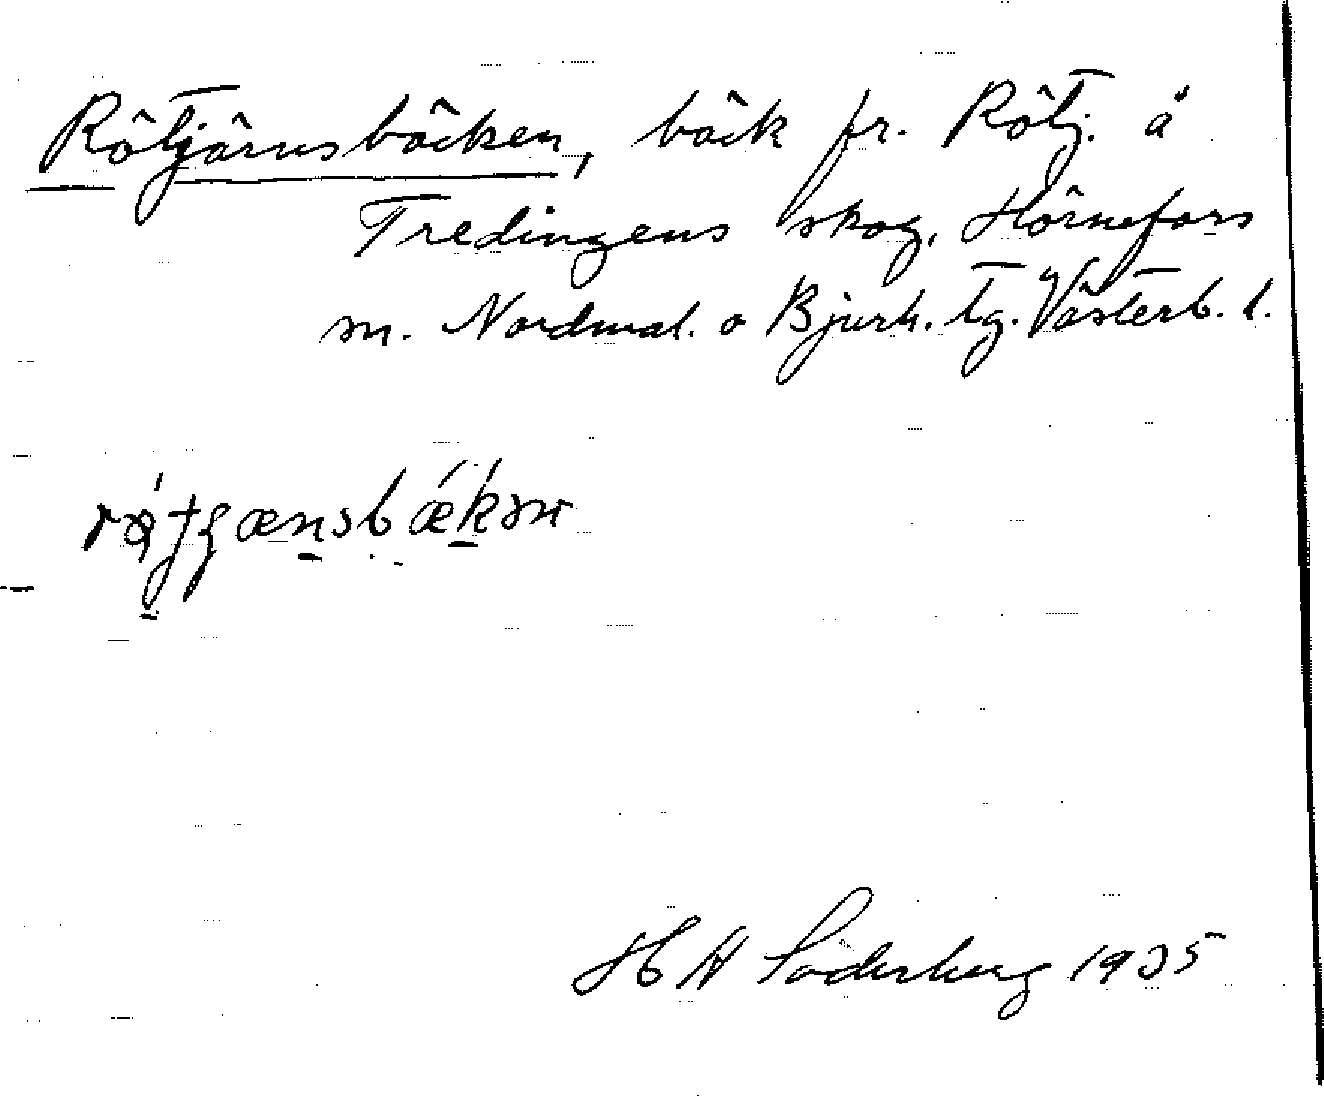 Rötjärnsbäcken, bäck fr. Rötj. å
Tredingens skog, Hörnefors
sn. Nordmal. o Bjurh. tg. Västerb. l.
H Söderberg 1935